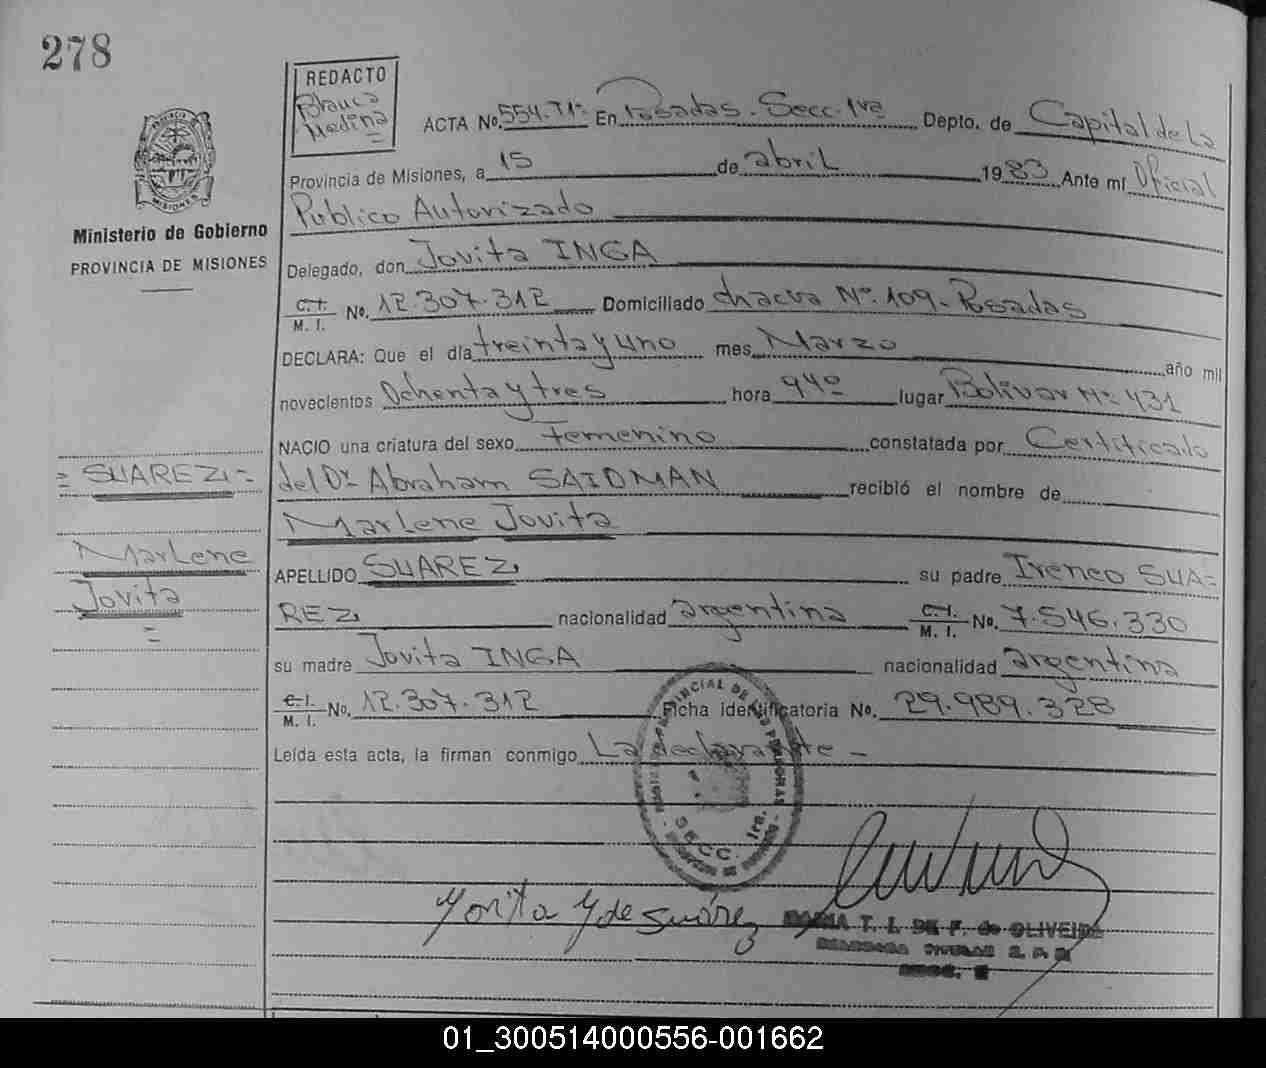 278
REDACTO
Blanca
Medina
=
ACTA No. 554.T1º En Posadas. Secc. 1ra Depto. de Capital de La
Provincia de Misiones, a 15 de abril 1983 Ante mí Oficial
Publico Autorizado
Delegado, don Jovita INGA
C.I.
M. I. No. 12.307.312 Domiciliado chacra Nº.109- Posadas
DECLARA: Que el día treinta y uno mes Marzo año mil
novecientos Ochenta y tres hora 9 40 lugar Bolivar Nº 431
NACIO una criatura del sexo femenino constatada por Certificado
del Dr. Abraham SAIDMAN recibió el nombre de
Marlene Jovita
APELLIDO SUAREZ su padre Ireneo SUA=
REZ nacionalidad argentina C.I.
M. I. No. 7.546.330
su madre Jovita INGA nacionalidad argentina
C.I.
M. I. No. 12.307.312 Ficha identificatoria No. 29.989.328
Leída esta acta, la firman conmigo La declarante -
PROVINCIA DE
MISIONES
Ministerio de Gobierno
PROVINCIA DE MISIONES
= SUAREZ =
Marlene
Jovita
=
PROVINCIAL DE LAS PERSONAS
SECC. 1ra.
Yovita Y de Suárez
MARIA T. I. DE F. de OLIVEIRA
TITULAR
SECC.
01_300514000556-001662